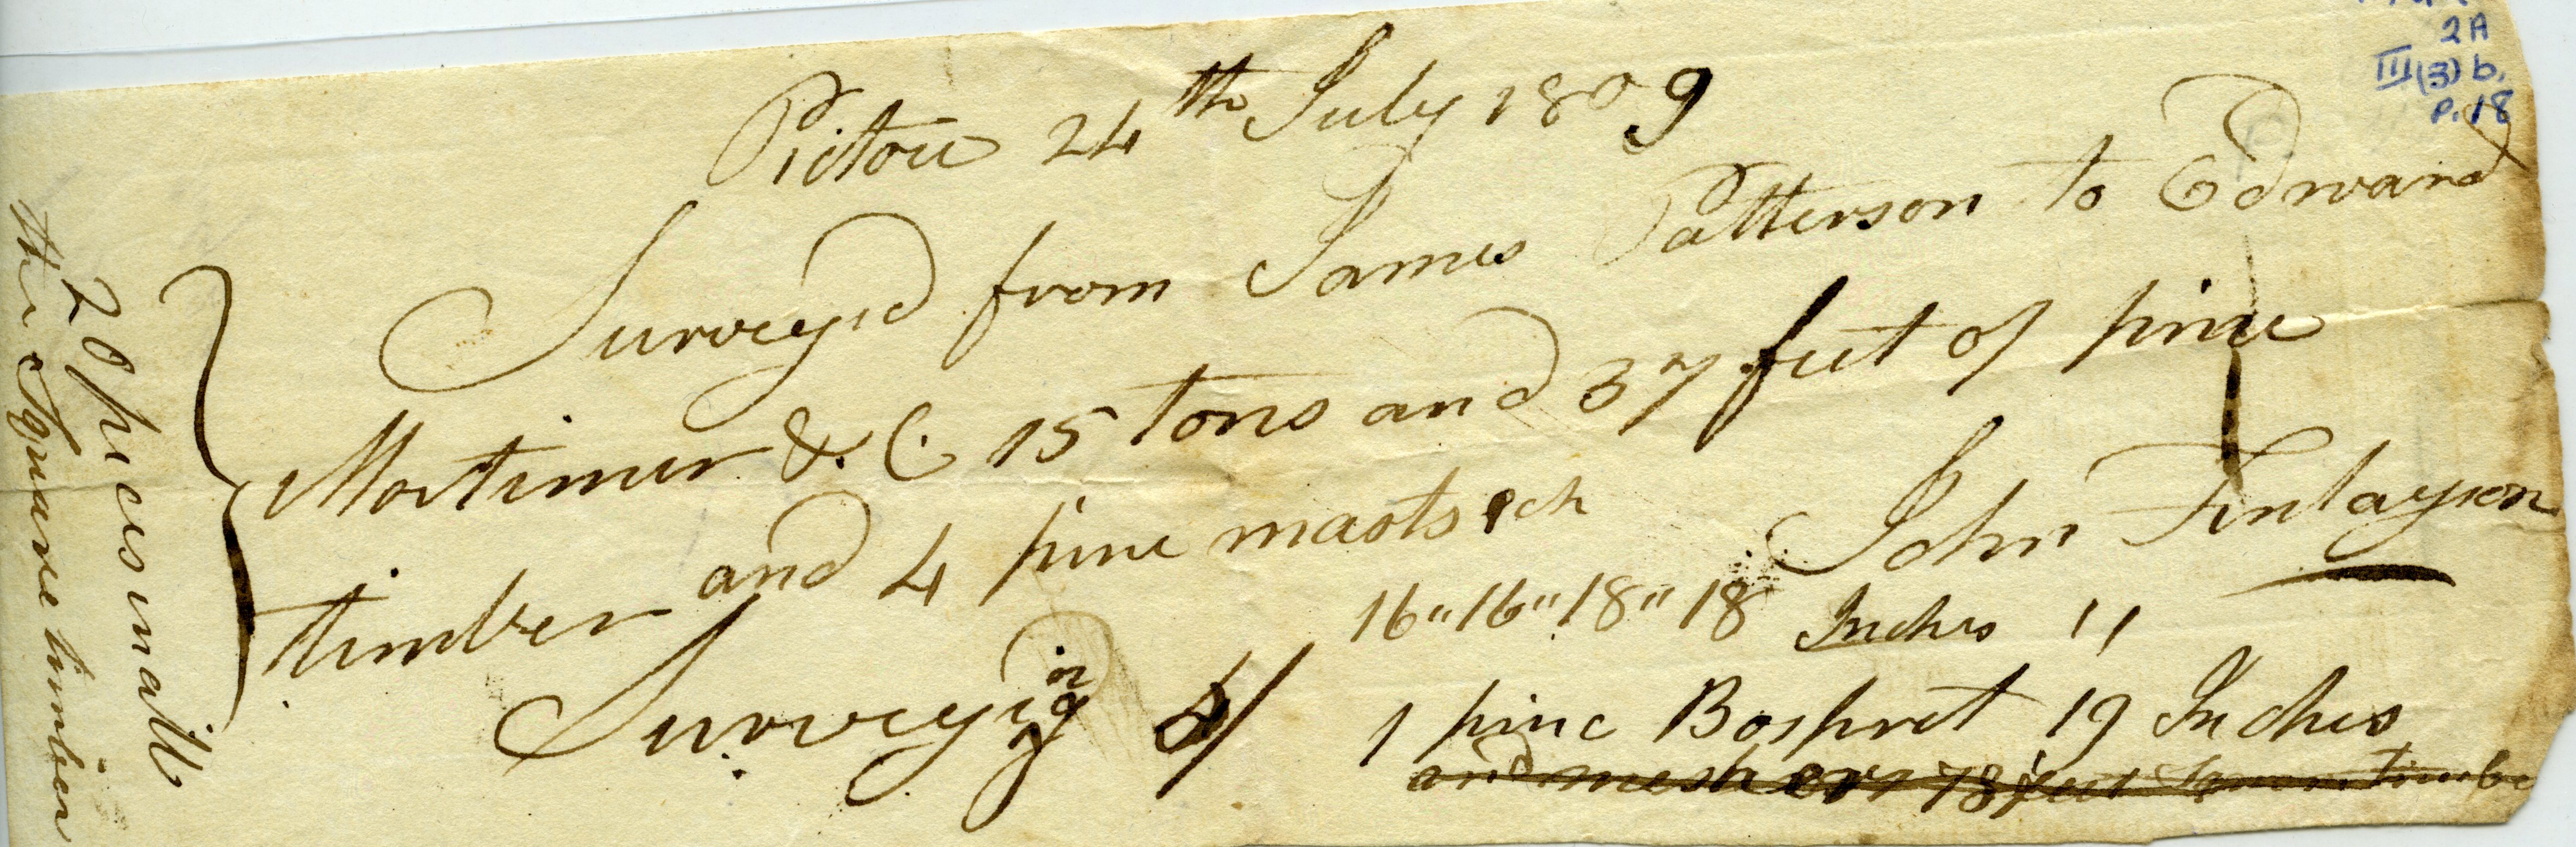 2A
III (3) b.
P. 18
Pictou 24th July 1809
Survey,d from James Patterson to Edward
Mortimer & C. 15 tons and 37 feet of pine
timber and 4 pine masts ech
16" 16" 18" 18 Inches "
John Finlayson
Surveying
1 pine Bospret 19 Inches
and 18 feet timbe
20 pices in all
the Square timber